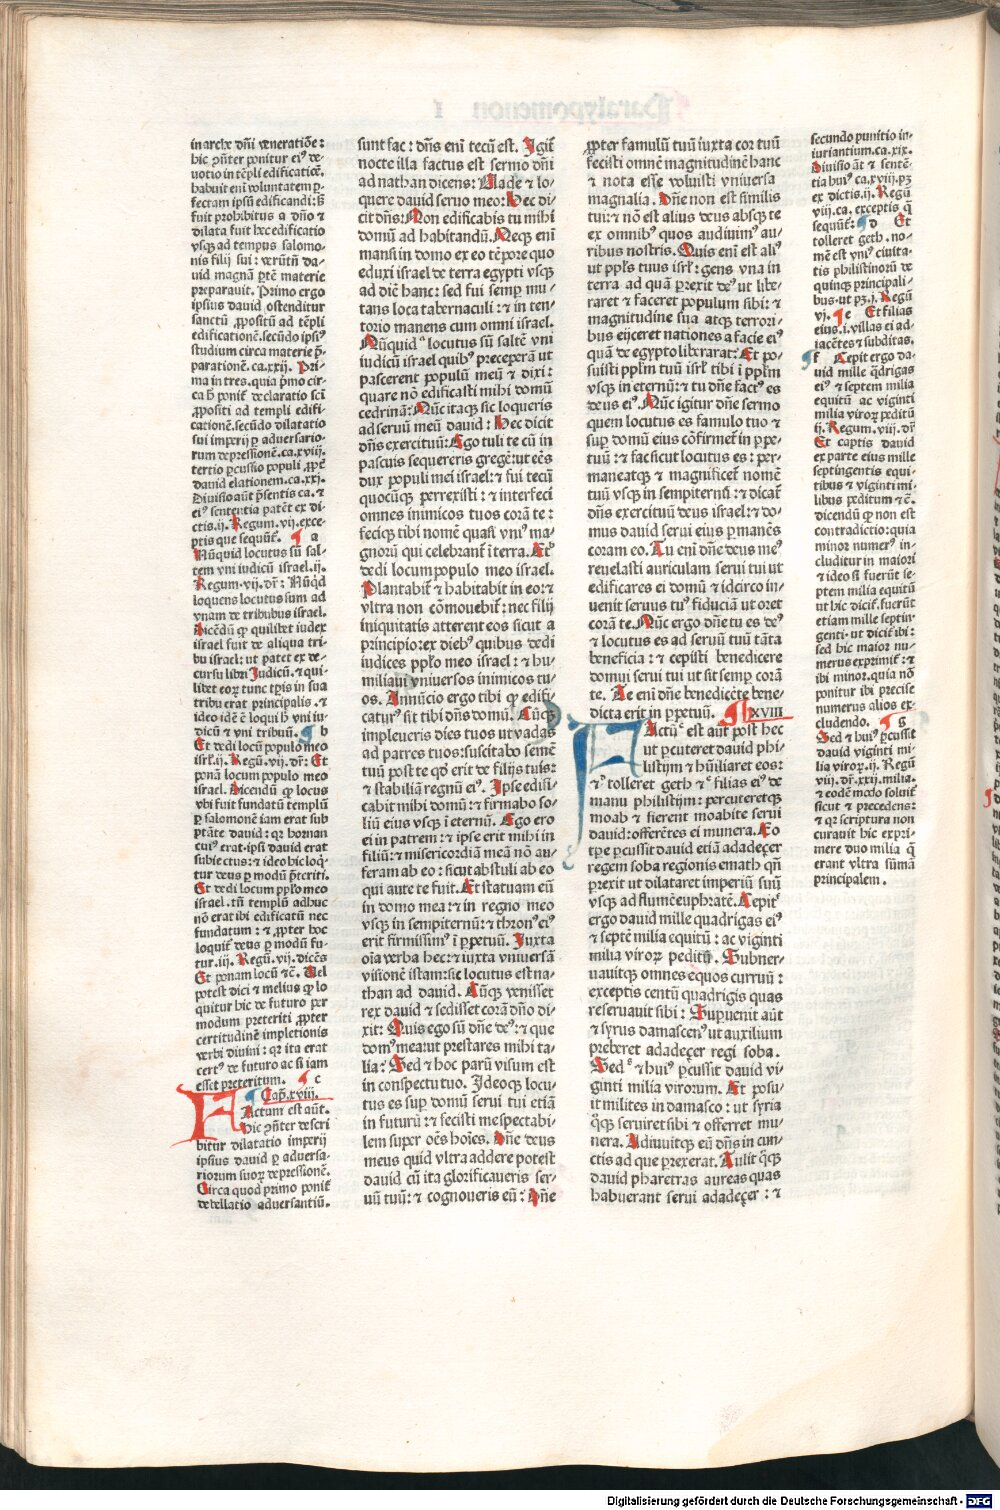 in arche dñi veneratiõe:
hic pñter ponitur ei⁹ de-
uotio in tẽpli edificatiõe.
habuit eni voluntatem p-
fectam ipsũ edificandi: s̄
fuit prohibitus a dño &
dilata fuit hec edificatio
vsq̃ ad tempus salomo-
nis filij sui: verũtñ da-
uid magnã ptẽ materie
preparauit. Primo ergo
ipsius dauid ostenditur
sanctũ ꝓpositũ ad tẽpli
edificationẽ. secũdo ipsi⁹
studium circa materie p̃-
parationẽ. ca. xxij. Pri-
ma in tres. quia p̃mo cir-
ca h̄ ponit̃ declaratio scĩ
ꝓpositi ad templi edifi-
cationẽ. secũdo dilatatio
sui imperij p aduersario-
rum depressionẽ. ca. xviij.
tertio pcussio populi ꝓpt̃
dauid elationem. ca. xxj.
Diuisio aũt p̃sentis ca. &
ei⁹ sententia patẽt ex di-
ctis. ij. Regum. vij. exce-
ptis que sequũt̃. a
Nũquid locutus sũ sal-
tem vni iudicũ israel. ij.
Regum. vij. dr̃: Nũqd
loquens locutus sum ad
vnam de tribubus israel.
Dicẽdũ ꝙ quilibet iudex
israel fuit de aliqua tri-
bu israel: ut patet ex de-
cursu libri Judicũ. & qui-
libet eoꝝ tunc tp̃is in sua
tribu erat principalis. &
ideo idẽ ẽ loqui h̄ vni iu-
dicũ & vni tribuũ. b
Et dedi locũ populo meo
isrl̃. ij. Regũ. vij. dr̃: Et
ponã locum populo meo
israel. Dicendũ ꝙ locus
vbi fuit fundatũ templũ
p salomonẽ iam erat sub
ptãte dauid: qr hornan
cui⁹ erat. ipsi dauid erat
subiectus: & ideo hic loq̃-
tur deus p modũ p̃teriti.
Et dedi locum pplo meo
israel. tñ templũ adhuc
nõ erat ibi edificatũ nec
fundatum: & ꝓpter hoc
loquit̃ deus p modũ fu-
tur. iij. Regũ. vij. dicẽs
Et ponam locũ &c̃. Uel
potest dici & melius ꝙ lo
quitur hic de futuro per
modum preteriti ꝓpter
certitudinẽ impletionis
verbi diuini: qr ita erat
cert⁹ de futuro ac si iam
esset preteritum. c
Cap. xviij.
FActum est aũt.
Hic p̃nter descri
bitur dilatatio imperij
ipsius dauid p aduersa-
riorum suoꝝ depressionẽ.
Circa quod primo ponit̃
debellatio aduersantiũ.
sunt fac: dñs eni tecũ est. Igit̃
nocte illa factus est sermo dñi
ad nathan dicens: Uade & lo-
quere dauid seruo meo: Hec di-
cit dñs: Non edificabis tu mihi
domũ ad habitandũ. Neqꝫ enĩ
mansi in domo ex eo tẽpore quo
eduxi israel de terra egypti vsqꝫ
ad diẽ hanc: sed fui semp mu-
tans loca tabernaculi: & in ten-
torio manens cum omni israel.
Nũquid locutus sũ saltẽ vni
iudicũ israel quib⁹ preceperã ut
pascerent populũ meũ & dixi:
quare nõ edificasti mihi domũ
cedrinã: Nũc itaqꝫ sic loqueris
ad seruũ meũ dauid: Hec dicit
dñs exercituũ: Ego tuli te cũ in
pascuis sequereris gregẽ: ut eẽs
dux populi mei israel: & fui tecũ
quocũqꝫ perrexisti: & interfeci
omnes inimicos tuos corã te:
feciqꝫ tibi nomẽ quasi vni⁹ ma-
gnorũ qui celebrant̃ ĩ terra. Et
dedi locum populo meo israel.
Plantabit̃ & habitabit in eo: &
vltra non cõmouebit̃: nec filij
iniquitatis atterent eos sicut a
principio: ex dieb⁹ quibus dedi
iudices pplo meo israel: & hu-
miliaui vniuersos inimicos tu-
os. Annũcio ergo tibi ꝙ edifi-
catur⁹ sit tibi dñs domũ. Cũqꝫ
impleueris dies tuos ut vadas
ad patres tuos: suscitabo semẽ
tuũ post te qđ erit de filijs tuis:
& stabiliã regnũ ei⁹. Ipse edifi-
cabit mihi domũ: & firmabo so-
liũ eius vsqꝫ ĩ eternũ. Ego ero
ei in patrem: & ipse erit mihi in
filiũ: & misericordiã meã nõ au-
feram ab eo: sicut abstuli ab eo
qui ante te fuit. Et statuam eũ
in domo mea: & in regno meo
vsqꝫ in sempiternũ: & thron⁹ ei⁹
erit firmissim⁹ ĩ ppetuũ. Juxta
oĩa verba hec: & iuxta vniuersã
visionẽ istam: sic locutus est na-
than ad dauid. Cũqꝫ venisset
rex dauid & sedisset corã dño di-
xit: Quis ego sũ dñe de⁹: & que
dom⁹ mea: ut prestares mihi ta-
lia: Sed & hoc parũ visum est
in conspectu tuo. Ideoqꝫ locu-
tus es sup domũ serui tui etiã
in futurũ: & fecisti me spectabi-
lem super oẽs hoĩes. Dñe deus
meus quid vltra addere potest
dauid cũ ita glorificaueris ser-
uũ tuũ: & cognoueris eũ: Dñe
ꝓpter famulũ tuũ iuxta cor tuũ
fecisti omnẽ magnitudinẽ hanc
& nota esse voluisti vniuersa
magnalia. Dñe non est similis
tui: & nõ est alius deus absqꝫ te
ex omnib⁹ quos audiuim⁹ au-
ribus nostris. Quis enĩ est ali⁹
ut ppls tuus isrl̃: gens vna in
terra ad quã prexit de⁹ ut libe-
raret & faceret populum sibi: &
magnitudine sua atqꝫ terrori-
bus eijceret nationes a facie ei⁹
quã de egypto liberarat: Et po-
suisti pplm tuũ isrl̃ tibi ĩ pplm
vsqꝫ in eternũ: & tu dñe fact⁹ es
deus ei⁹. Nũc igitur dñe sermo
quem locutus es famulo tuo &
sup domũ eius cõfirmet̃ in ppe-
tuũ: & fac sicut locutus es: per-
maneatqꝫ & magnificet̃ nomẽ
tuũ vsqꝫ in sempiternũ: & dicat̃
dñs exercituũ deus israel: & do-
mus dauid serui eius pmanẽs
coram eo. Tu eni dñe deus me⁹
reuelasti auriculam serui tui ut
edificares ei domũ & idcirco in-
uenit seruus tu⁹ fiduciã ut oret
corã te. Nũc ergo dñe tu es de⁹
& locutus es ad seruũ tuũ tãta
beneficia: & cepisti benedicere
domui serui tui ut sit semp corã
te. Te eni dñe benedicẽte bene-
dicta erit in ppetuũ. XVIII
FActũ est aũt post hec
ut pcuteret dauid phi-
listijm & hũiliaret eos:
& tolleret geth & filias ei⁹ de
manu philistijm: percuteretqꝫ
moab & fierent moabite serui
dauid: offerẽtes ei munera. Eo
tpe pcussit dauid etiã adadeçer
regem soba regionis emath qñ
prexit ut dilataret imperiũ suũ
vsqꝫ ad flumẽ euphratẽ. Cepit
ergo dauid mille quadrigas ei⁹
& septẽ milia equitũ: ac viginti
milia viroꝝ peditũ. Subner-
uauitqꝫ omnes equos curruũ:
exceptis centũ quadrigis quas
reseruauit sibi: Supuenit aũt
& syrus damascen⁹ ut auxilium
preberet adadeçer regi soba.
Sed & hui⁹ pcussit dauid vi-
ginti milia virorum. Et posu-
it milites in damasco: ut syria
q̃ꝫ seruiret sibi & offerret mu-
nera. Adiuuitqꝫ eũ dñs in cun-
ctis ad que prexerat. Tulit q̃ꝫ
dauid pharetras aureas quas
habuerant serui adadeçer: &
secundo punitio in-
iuriantium. ca. xix.
Diuisio aũt & sentẽ-
tia hui⁹ ca. xviij. pꝫ
ex dictis. ij. Regũ
viij. ca. exceptis q̃
sequũt̃: d Et
tolleret geth. no-
mẽ est vni⁹ ciuita-
tis philistinorũ de
quinqꝫ principali-
bus. ut pꝫ. j. Regũ
vj. e Et filias
eius. i. villas ei ad-
iacẽtes & subditas.
f Cepit ergo da-
uid mille q̃drigas
ei⁹ & septem milia
equitũ ac viginti
milia viroꝝ peditũ
ij. Regum. viij. dr̃
Et captis dauid
ex parte eius mille
septingentis equi-
tibus & viginti mi-
libus peditum &c̃.
dicendũ ꝙ non est
contradictio: quia
minor numer⁹ in-
cluditur in maiori
& ideo si fuerũt se-
ptem milia equitũ
ut hic dicit̃. fuerũt
etiam mille septin-
genti. ut dicit̃ ibi:
sed hic maior nu-
merus exprimit̃: &
ibi minor. quia nõ
ponitur ibi precise
numerus alios ex-
cludendo. g
Sed & hui⁹ pcussit
dauid viginti mi-
lia viroꝝ. ij. Regũ
viij. dr̃. xxij. milia.
& eodẽ modo soluit̃
sicut & precedens:
& qr scriptura non
curauit hic expri-
mere duo milia q̃
erant vltra sũmã
principalem.
Digitalisierung gefördert durch die Deutsche Forschungsgemeinschaft - DFG